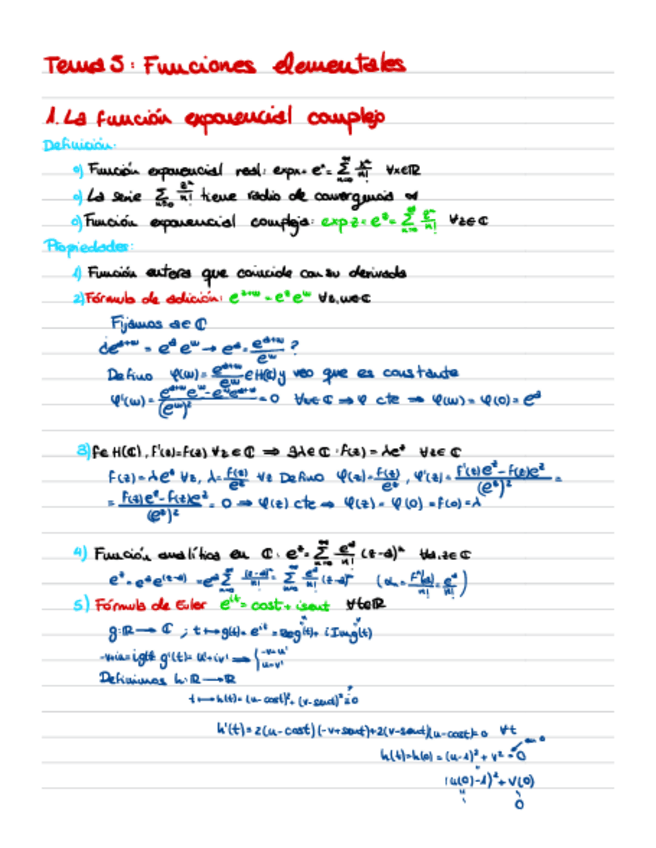 Tema 5: Funciones elementales
1. La función exponencial compleja
Definición:
o) Función exponencial real: exp x = e^x = ∑_{n=0}^∞ x^n/n! ∀x∈ℝ
o) La serie ∑_{n≥0} z^n/n! tiene radio de convergencia ∞
o) Función exponencial compleja: exp z = e^z = ∑_{n=0}^∞ z^n/n! ∀z∈ℂ
Propiedades:
1) Función entera que coincide con su derivada
2) Fórmula de adición: e^{z+w} = e^z e^w ∀z,w∈ℂ
Fijamos a∈ℂ
¿e^{a+w} = e^a e^w → e^a = e^{a+w}/e^w ?
Defino φ(w) = e^{a+w}/e^w ∈ H(ℂ) y veo que es constante
φ'(w) = (e^{a+w}e^w - e^w e^{a+w})/(e^w)^2 = 0 ∀w∈ℂ ⇒ φ cte ⇒ φ(w) = φ(0) = e^a
3) f∈H(ℂ), f'(z)=f(z) ∀z∈ℂ ⇒ ∃λ∈ℂ : f(z) = λe^z ∀z∈ℂ
f(z) = λe^z ∀z, λ = f(z)/e^z ∀z Defino φ(z) = f(z)/e^z, φ'(z) = (f'(z)e^z - f(z)e^z)/(e^z)^2 =
= (f(z)e^z - f(z)e^z)/(e^z)^2 = 0 ⇒ φ(z) cte ⇒ φ(z) = φ(0) = f(0) = λ
4) Función analítica en ℂ: e^z = ∑_{n=0}^∞ e^a/n! (z-a)^n ∀a,z∈ℂ
e^z = e^a e^{(z-a)} = e^a ∑_{n=0}^∞ (z-a)^n/n! = ∑_{n=0}^∞ e^a/n! (z-a)^n (α_n = f^n(a)/n! = e^a/n!)
5) Fórmula de Euler e^{it} = cos t + i sen t ∀t∈ℝ
g: ℝ → ℂ ; t ↦ g(t) = e^{it} = Re g(t) + i Im g(t)
-v+iu = ig(t) = g'(t) = u'+iv' ⇒ { -v=u' u=v'
Definimos h: ℝ → ℝ
t ↦ h(t) = (u-cos t)^2 + (v-sen t)^2 = 0
h'(t) = 2(u-cos t)(-v+sen t)+2(v-sen t)(u-cos t) = 0 ∀t
h(t) = h(0) = (u-1)^2 + v^2 = 0
(u(0)-1)^2 + v(0)
0